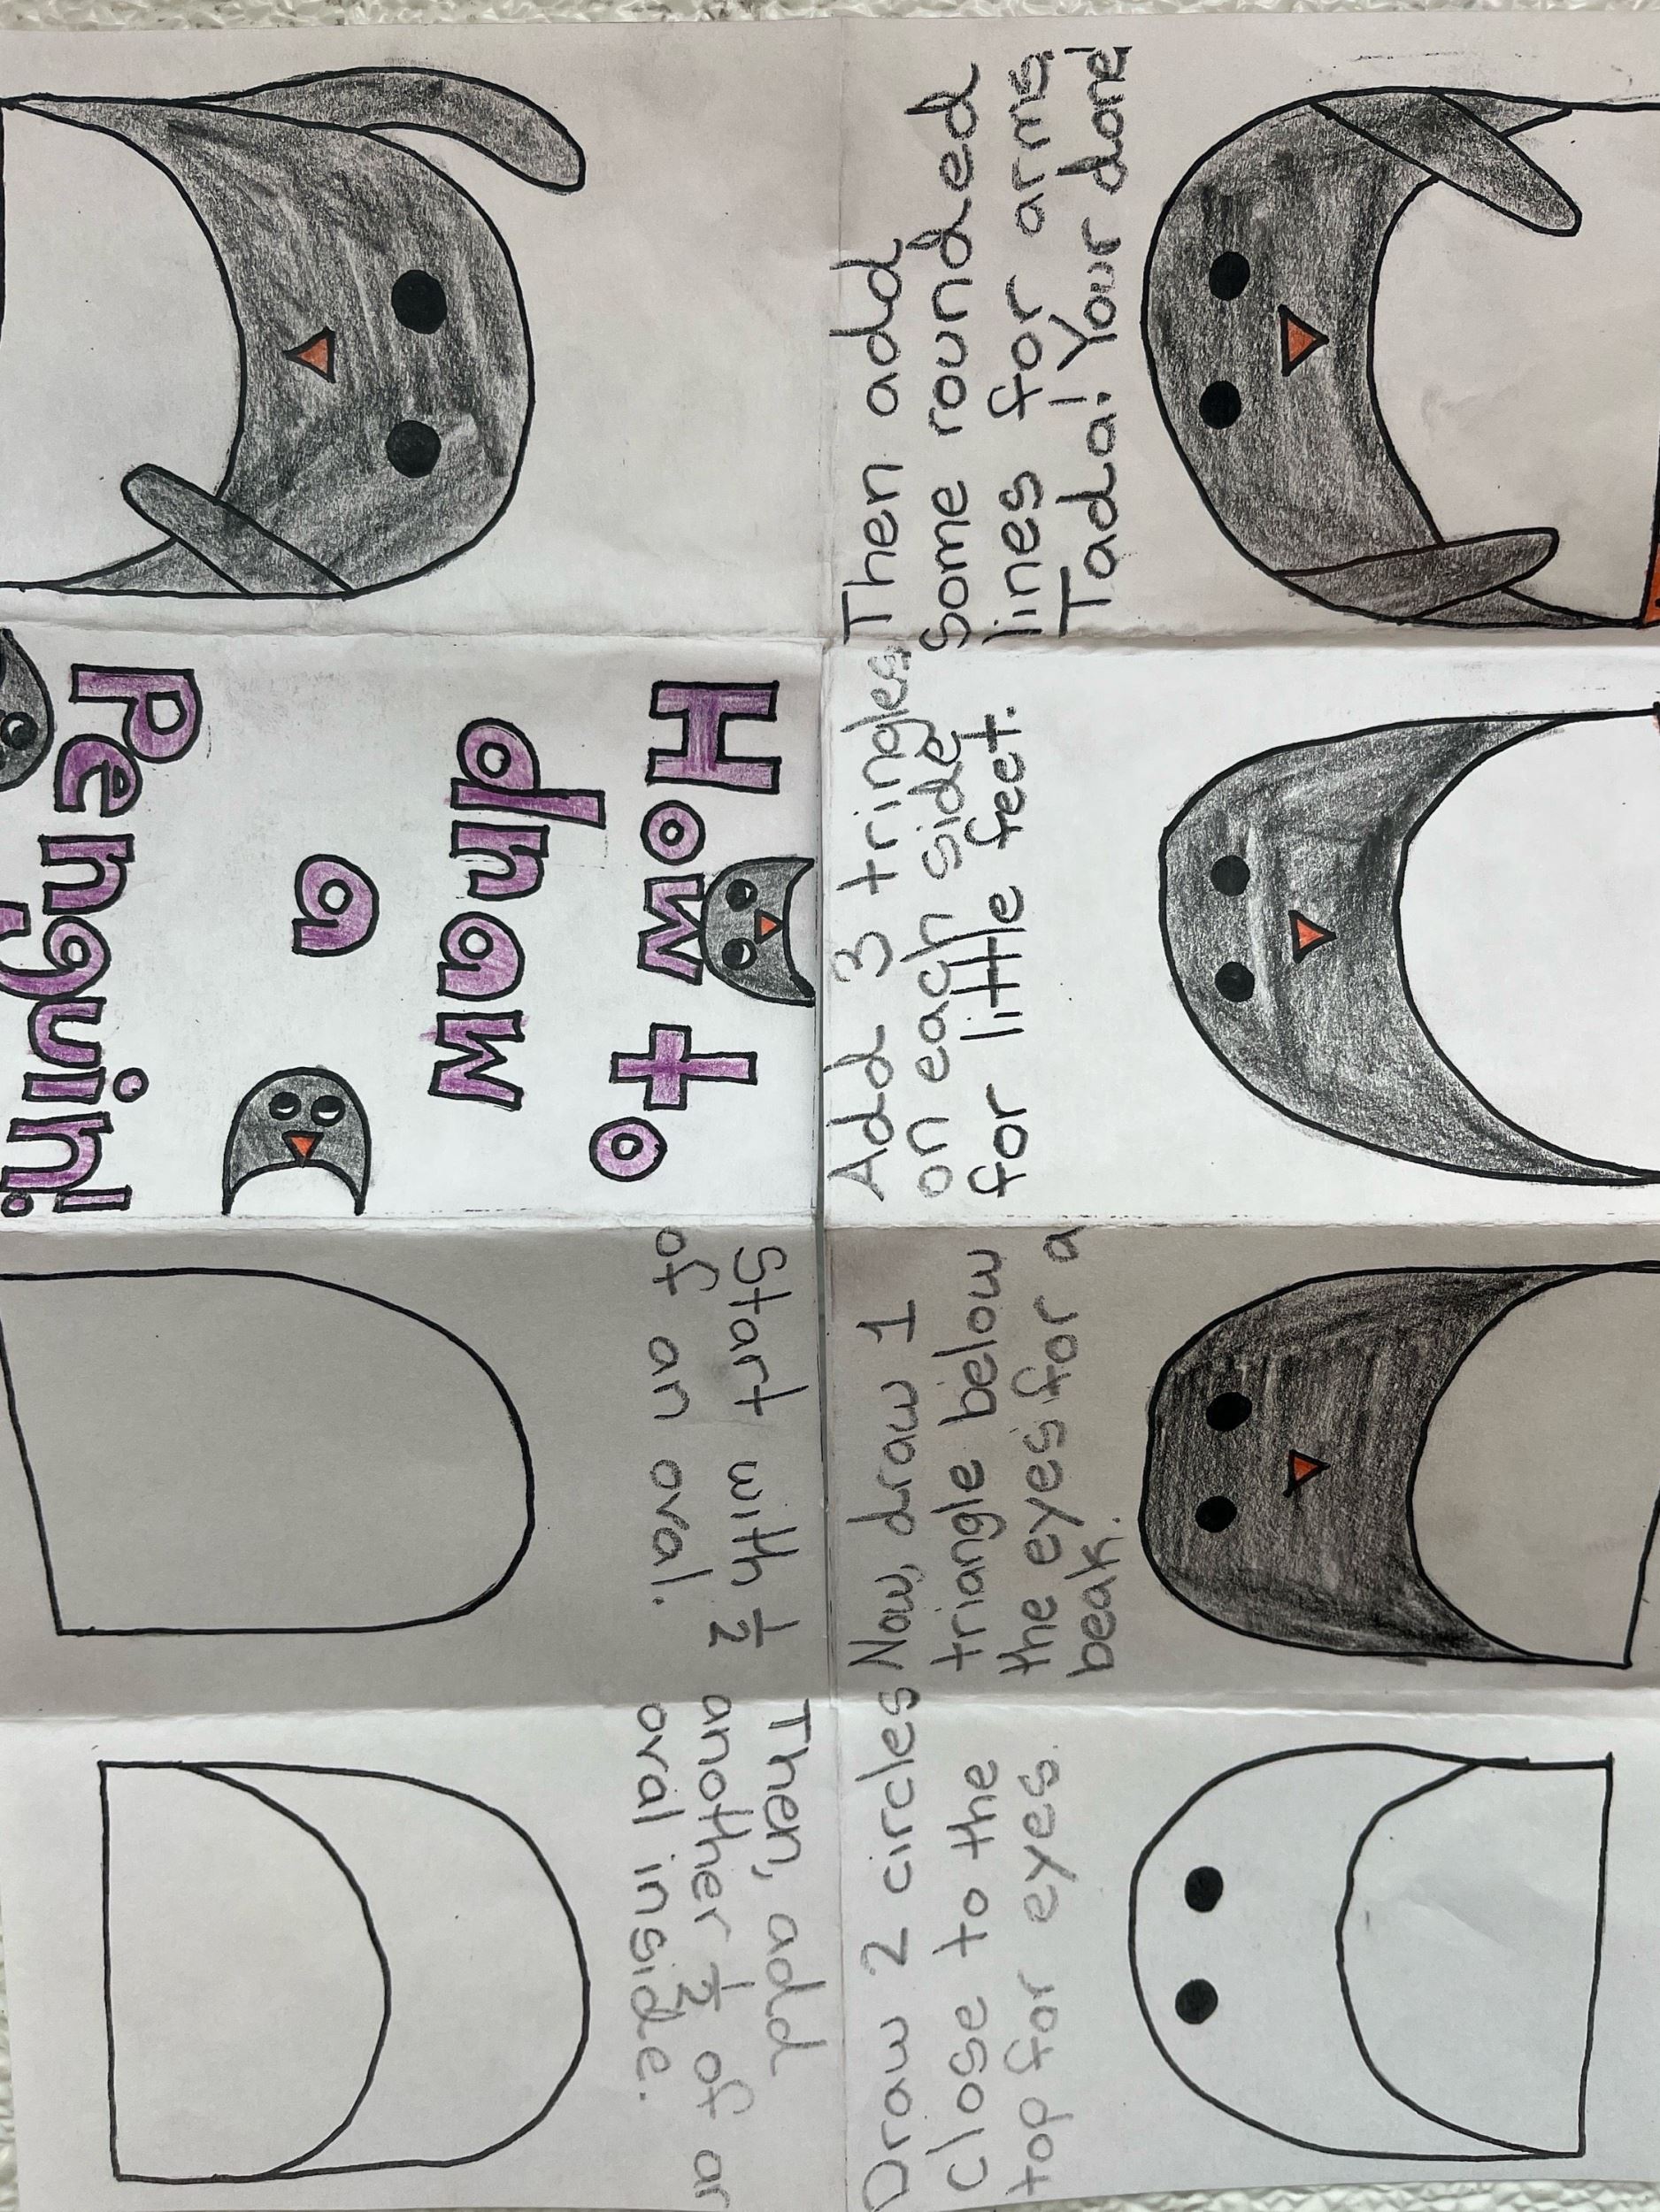 How to
draw
a
Penguin!
Start with ½
of an oval.
Then, add
another ½ of an
oval inside.
Draw 2 circles
close to the
top for eyes.
Now, draw 1
triangle below
the eyes for a
beak.
Add 3 tringles
on each side
for little feet.
Then add
some rounded
lines for arms.
Tada! Your done!